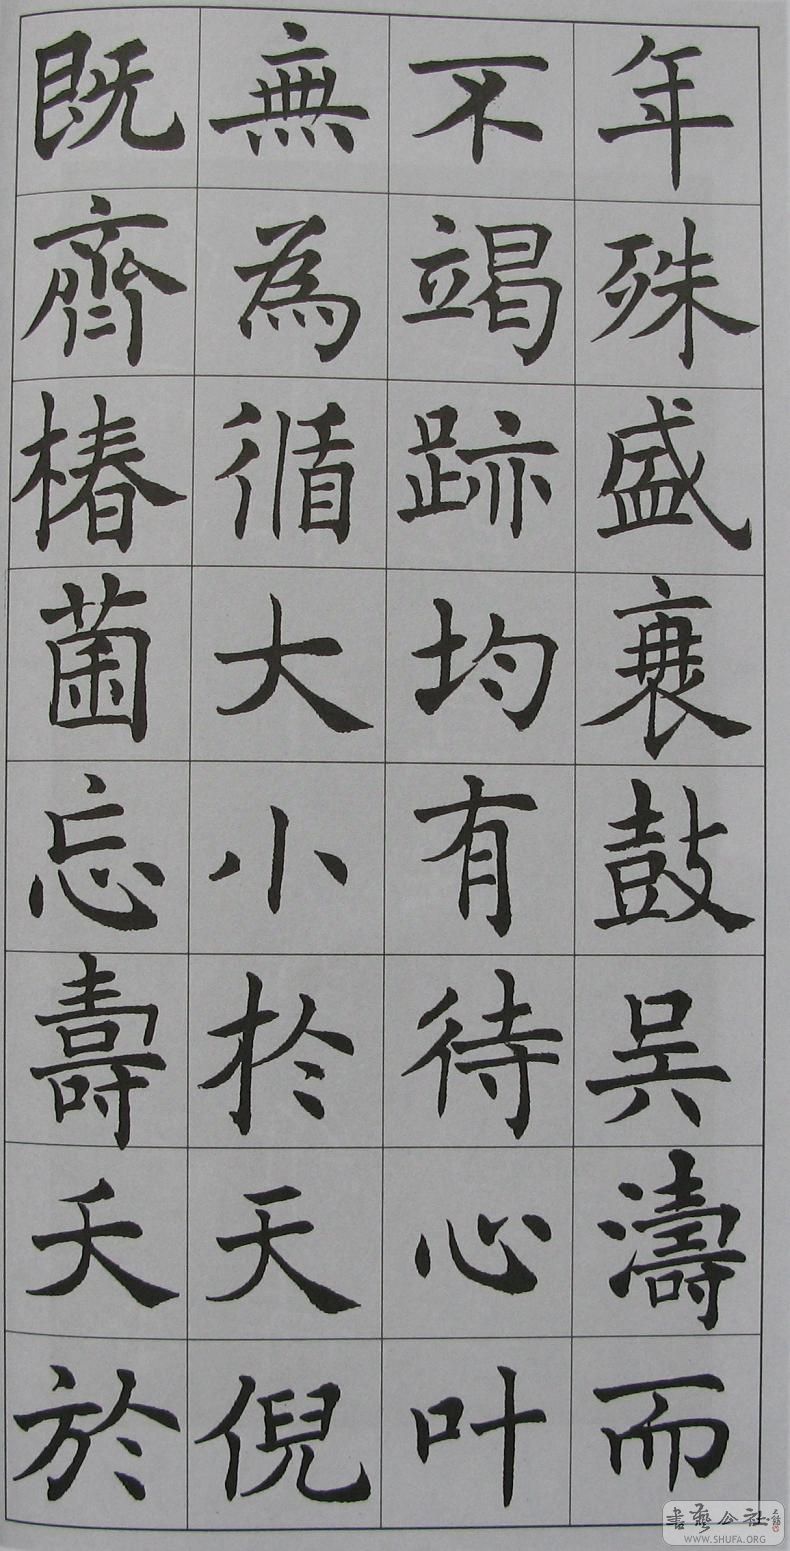 年殊盛衰鼓吴濤而
不竭跡均有待心叶
無為循大小於天倪
既齊椿菌忘壽夭於
書藝公社
WWW.SHUFA.ORG